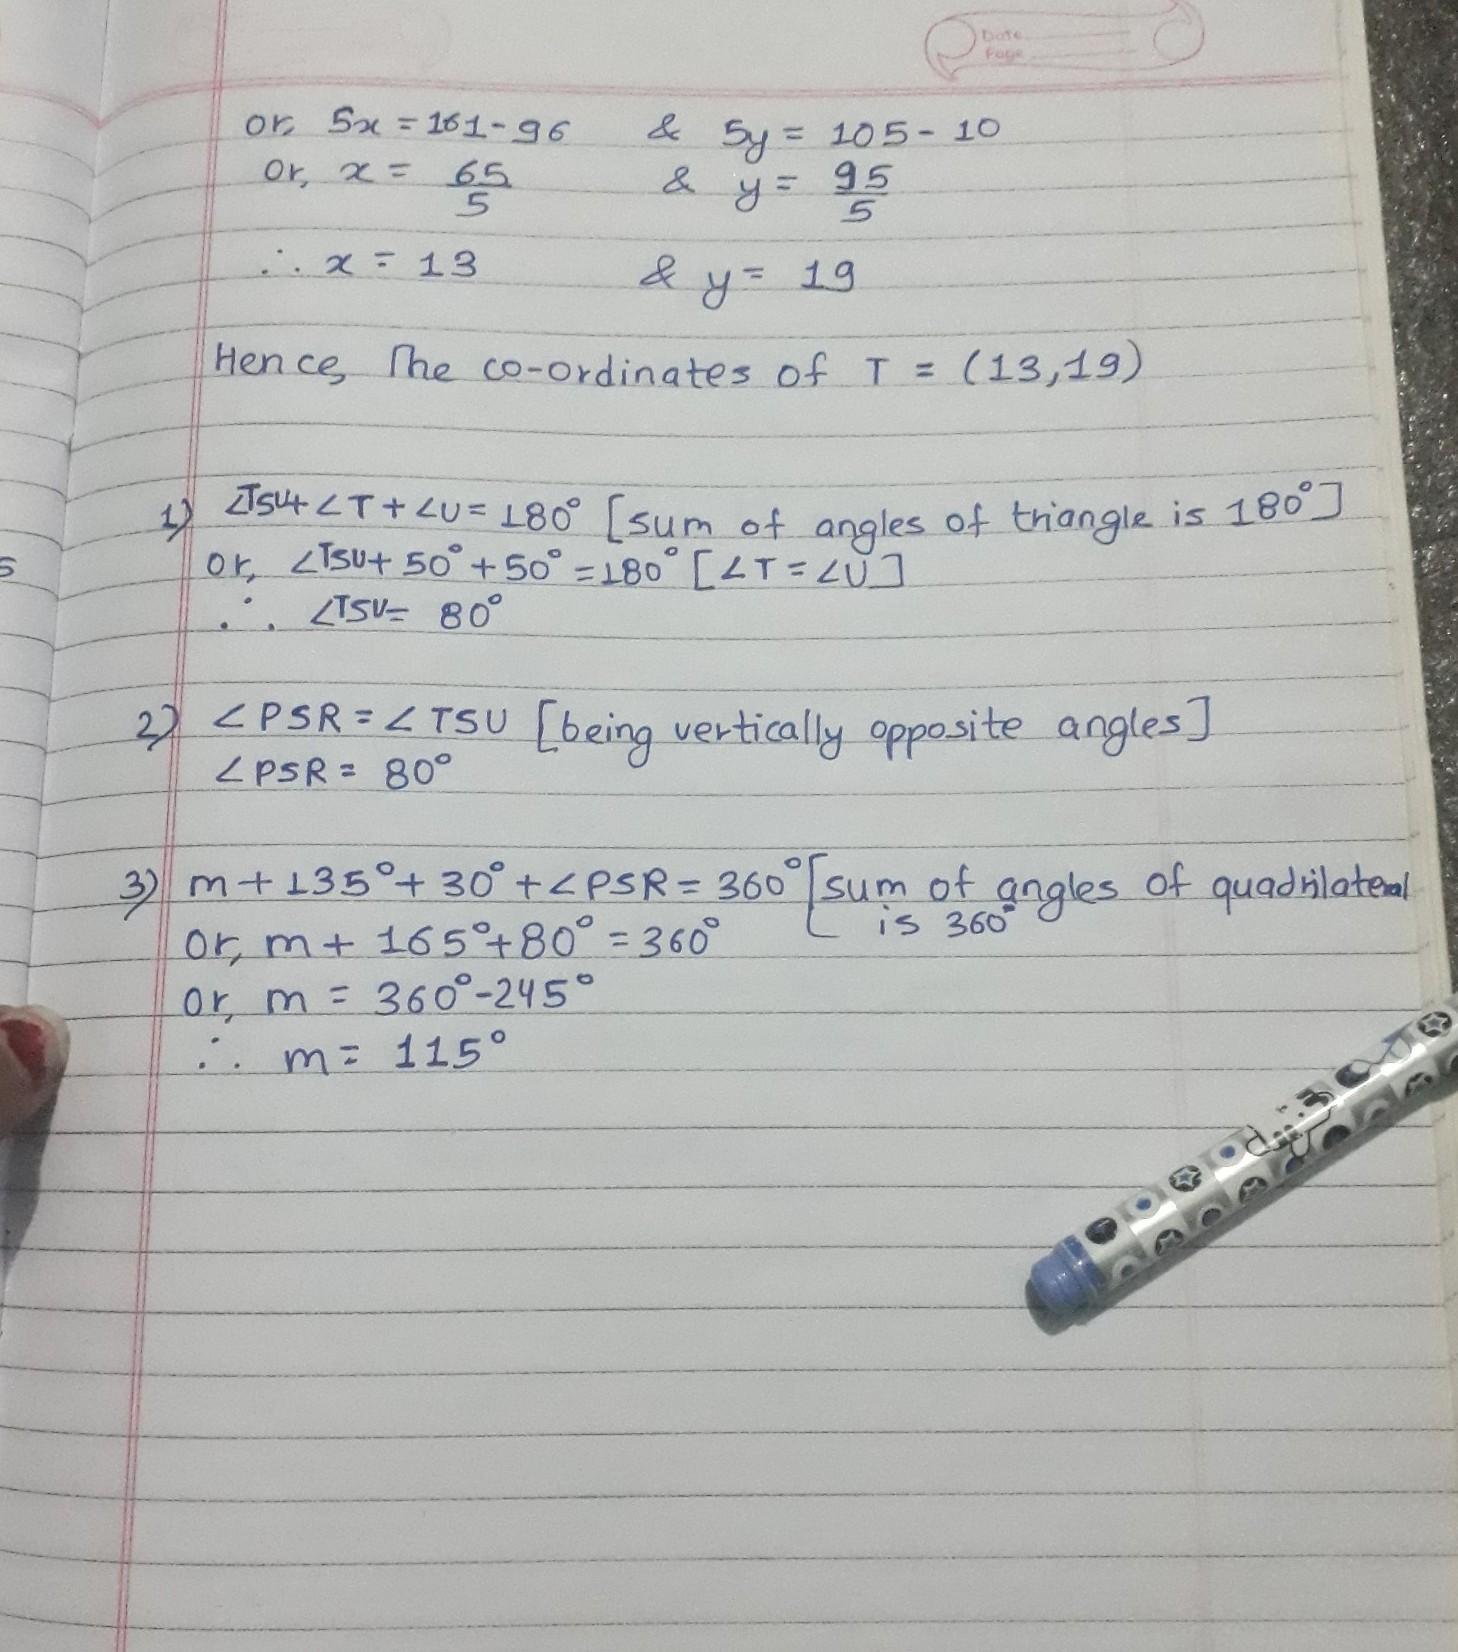 Date
Page
or, 5x = 161 - 96 & 5y = 105 - 10
or, x = 65/5 & y = 95/5
∴ x = 13 & y = 19
Hence, The co-ordinates of T = (13,19)
1) ∠TSU + ∠T + ∠U = 180° [sum of angles of triangle is 180°]
or, ∠TSU + 50° + 50° = 180° [∠T = ∠U]
∴ ∠TSU = 80°
2) ∠PSR = ∠TSU [being vertically opposite angles]
∠PSR = 80°
3) m + 135° + 30° + ∠PSR = 360° [sum of angles of quadrilateral
is 360°
or, m + 165° + 80° = 360°
or, m = 360° - 245°
∴ m = 115°